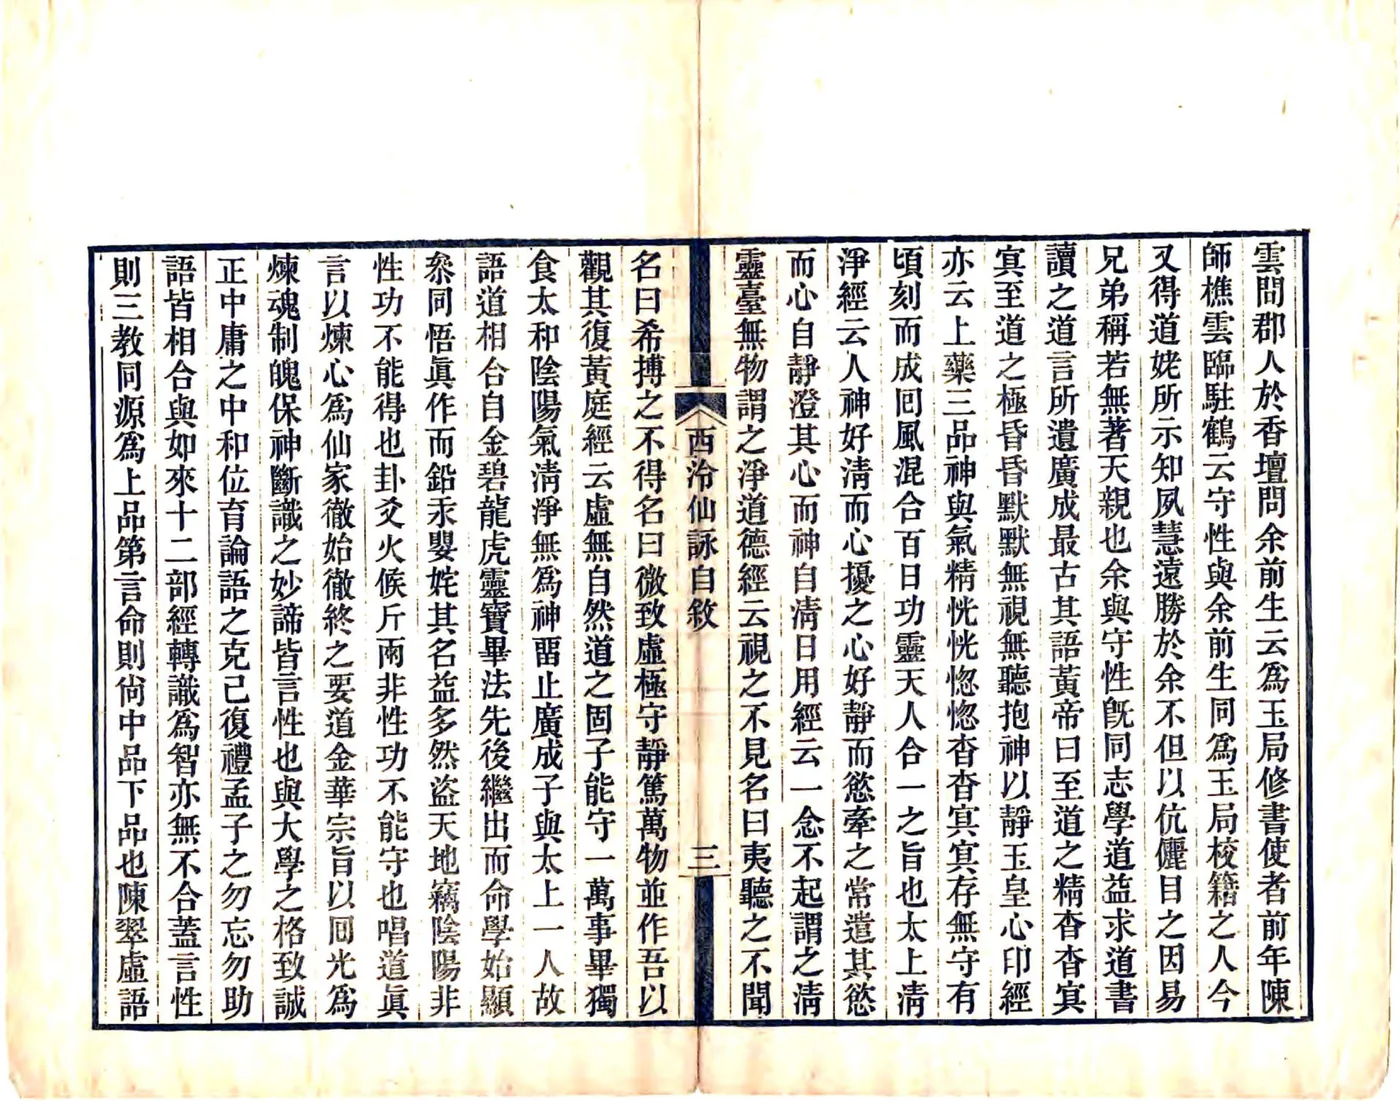 雲間郡人於香壇問余前生云爲玉局修書使者前年陳
師樵雲臨駐鶴云守性與余前生同爲玉局校籍之人今
又得道姥所示知夙慧遠勝於余不但以伉儷目之因易
兄弟稱若無著天親也余與守性旣同志學道益求道書
讀之道言所遺廣成最古其語黃帝曰至道之精杳杳冥
冥至道之極昏昏默默無視無聽抱神以靜玉皇心印經
亦云上藥三品神與氣精恍恍惚惚杳杳冥冥存無守有
頃刻而成囘風混合百日功靈天人合一之旨也太上淸
淨經云人神好淸而心擾之心好靜而慾牽之常遣其慾
而心自靜澄其心而神自淸日用經云一念不起謂之淸
靈臺無物謂之淨道德經云視之不見名曰夷聽之不聞
西泠仙詠自敘
三
名曰希搏之不得名曰微致虛極守靜篤萬物並作吾以
觀其復黃庭經云虛無自然道之固子能守一萬事畢獨
食太和陰陽氣淸淨無爲神畱止廣成子與太上一人故
語道相合自金碧龍虎靈寶畢法先後繼出而命學始顯
叅同悟眞作而鉛汞嬰姹其名益多然盜天地竊陰陽非
性功不能得也卦爻火候斤兩非性功不能守也唱道眞
言以煉心爲仙家徹始徹終之要道金華宗旨以囘光爲
煉魂制魄保神斷識之妙諦皆言性也與大學之格致誠
正中庸之中和位育論語之克己復禮孟子之勿忘勿助
語皆相合與如來十二部經轉識爲智亦無不合蓋言性
則三教同源爲上品第言命則尙中品下品也陳翠虛語